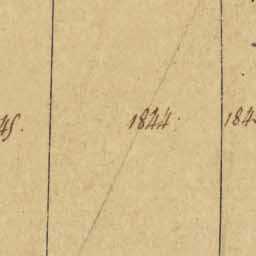 45. 1844. 184